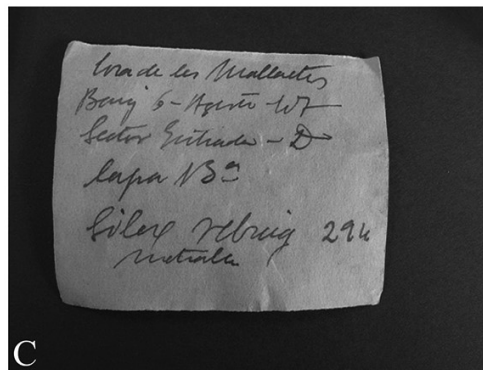 Cova de les Mallaetes
Barig 6 - Agosto -
Sector Entrada - D
Capa
Silex rebuig 294
C